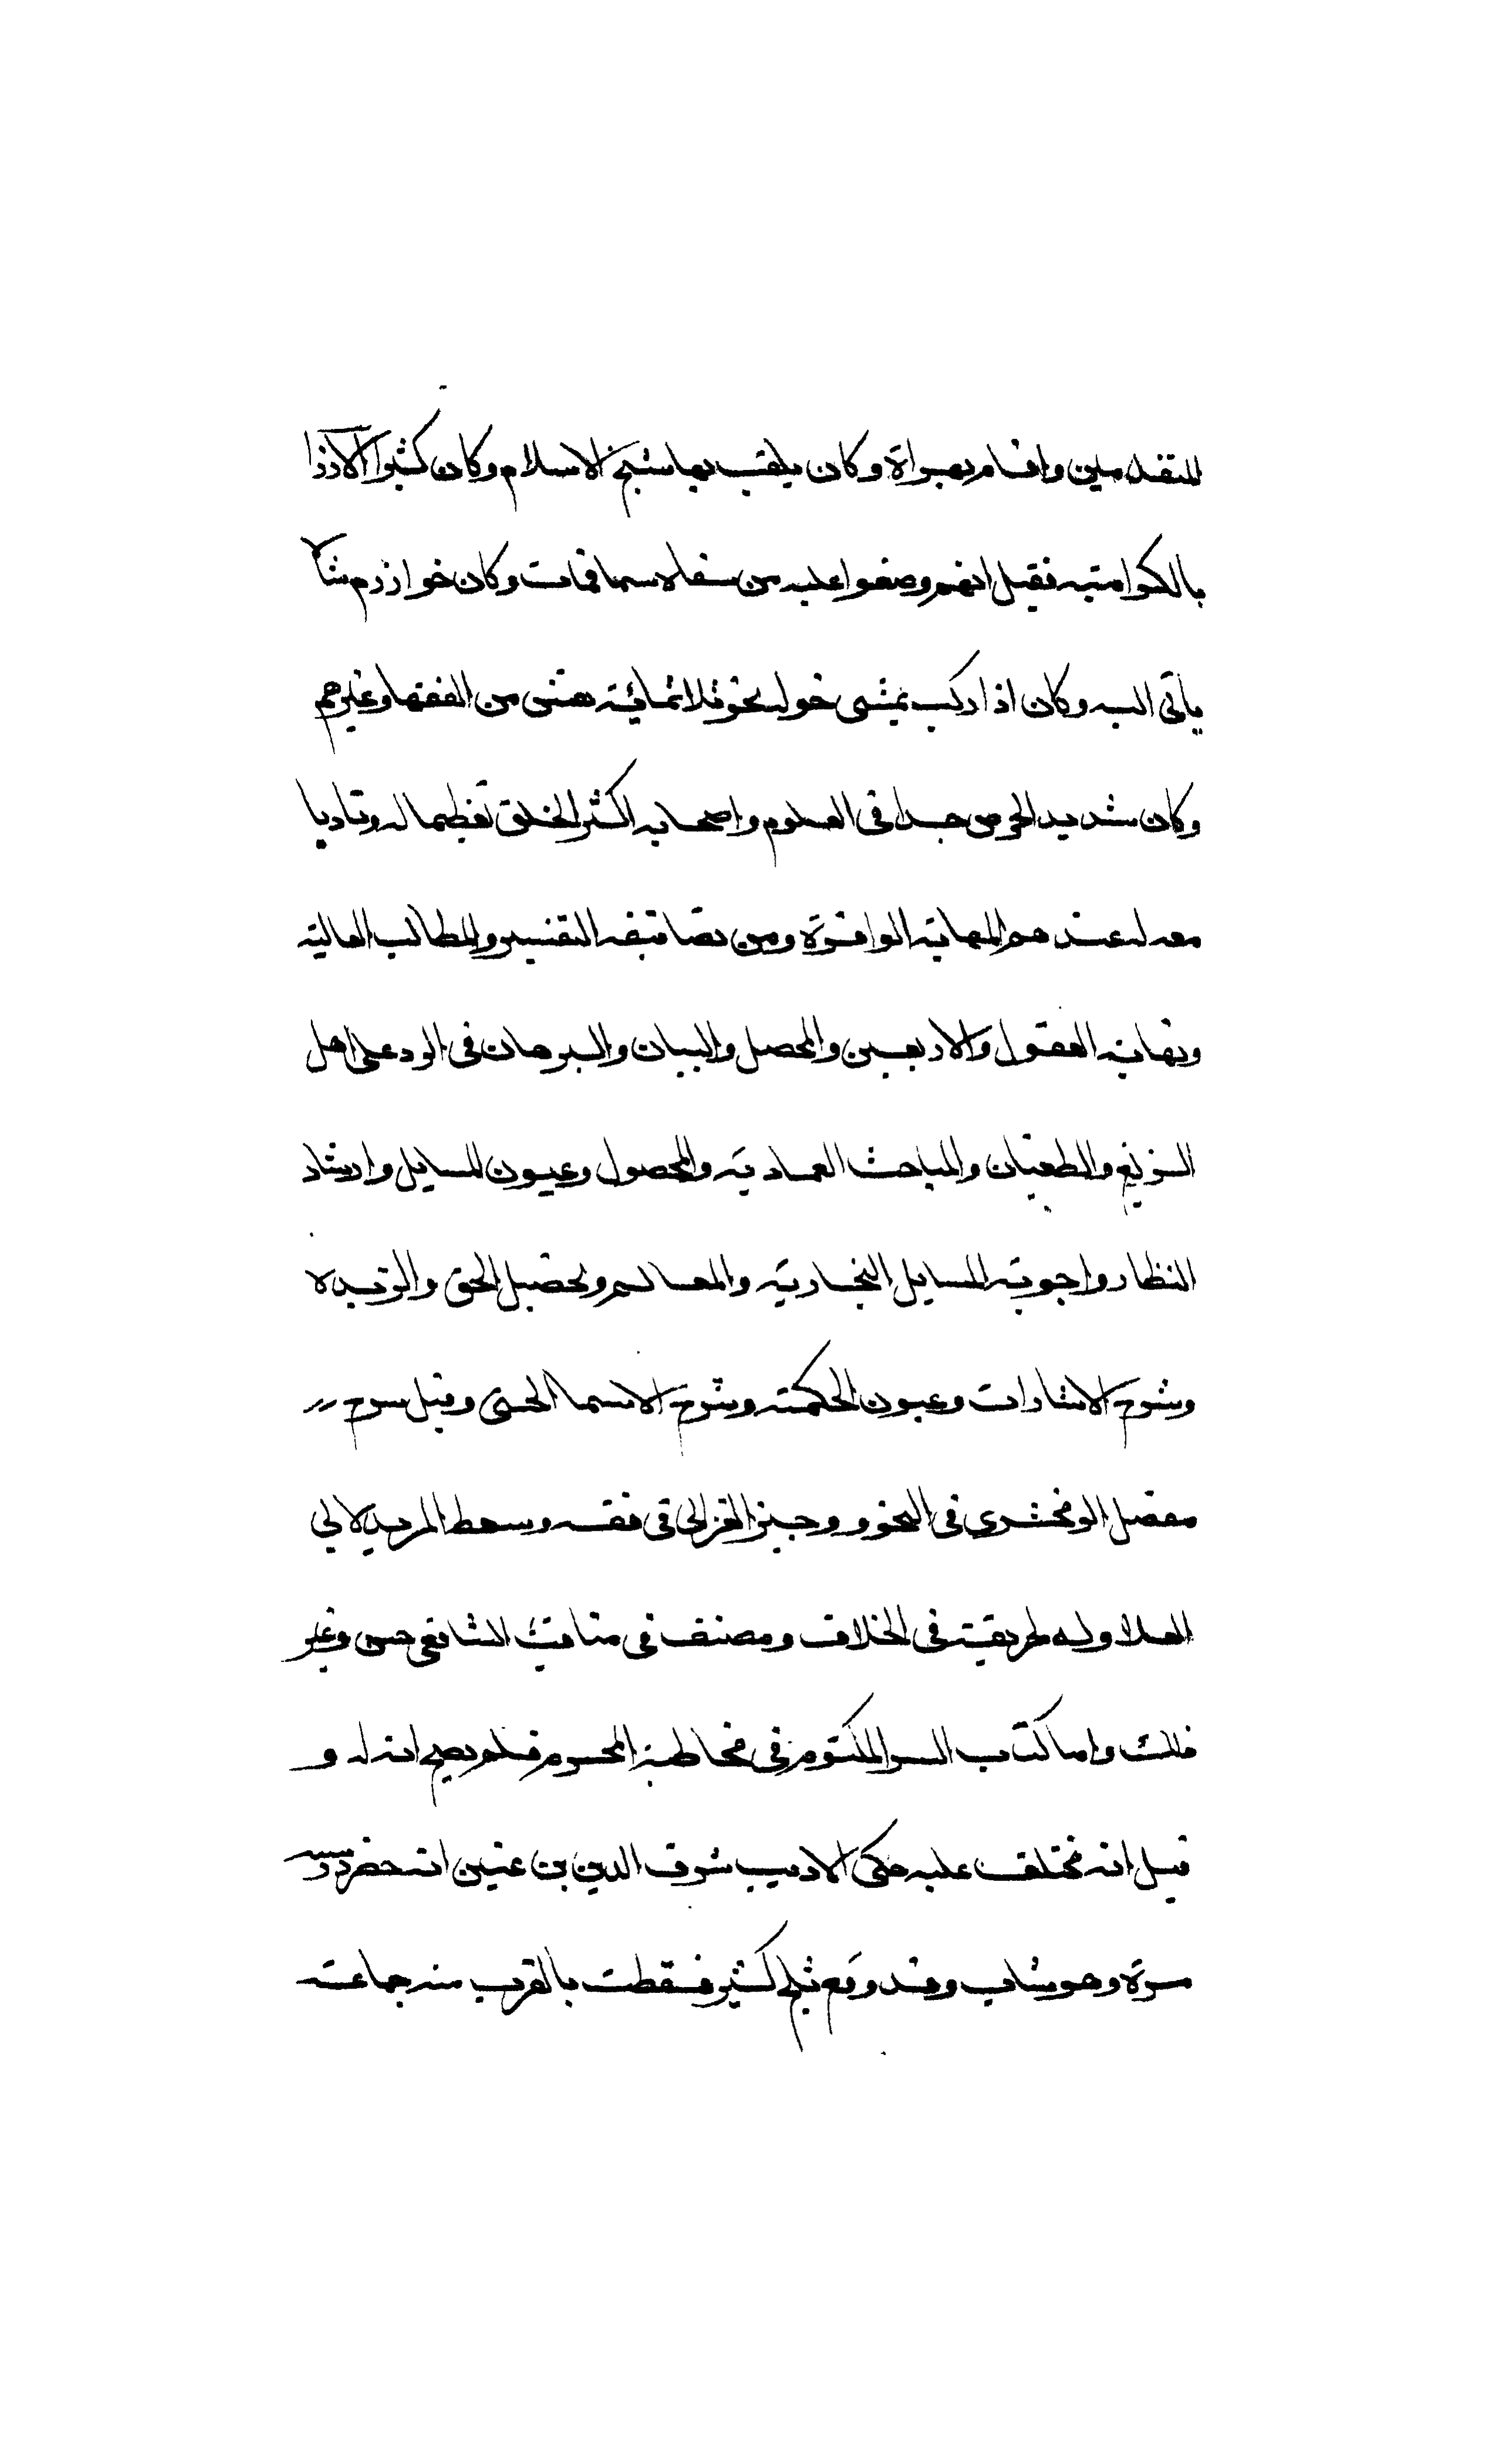 المتقدمين واقام بهراة وكان يلقب بها شيخ الاسلام وكان كثير الازرا
بالكرامية فقيل انهم وضعوا عليه من سقاه سما فمات وكان خوارزم شاه
ياتى اليه وكان اذا ركب يمشى حوله نحو ثلاثمائة مشتغل من الفقها وغيرهم
وكان شديد الحرص جدا فى العلوم واصحابه اكثر الخلق تعظيما له وتادبا
معه له عندهم المهابة الوافرة ومن تصانيفه التفسير والمطالب العالية
ونهاية العقول والاربعين والمحصل والبيان والبرهان فى الرد على اهل
الزيغ والطغيان والمباحث العمادية والمحصول وعيون المسايل وارشاد
النظار واجوبة المسايل النجارية والمعالم وتحصيل الحق والزبدة
وشرح الاشارات وعيون الحكمة وشرح الاسما الحسنى وقيل شرح
مفصل الزمخشري فى النحو ووجيز الغزالى فى فقه وسقط الزند لابي
العلا وله طريقة فى الخلاف ومصنف فى مناقب الشافعى حسن وغير
ذلك واما كتاب السر المكتوم فى مخاطبة النجوم فلم يصح انه له و
قيل انه مختلف عليه حكى الاديب شرف الدين بن عنين انه حضر درسه
مرة وهو شاب وقد وقع ثلج كثير فسقطت بالقرب منه جماعة